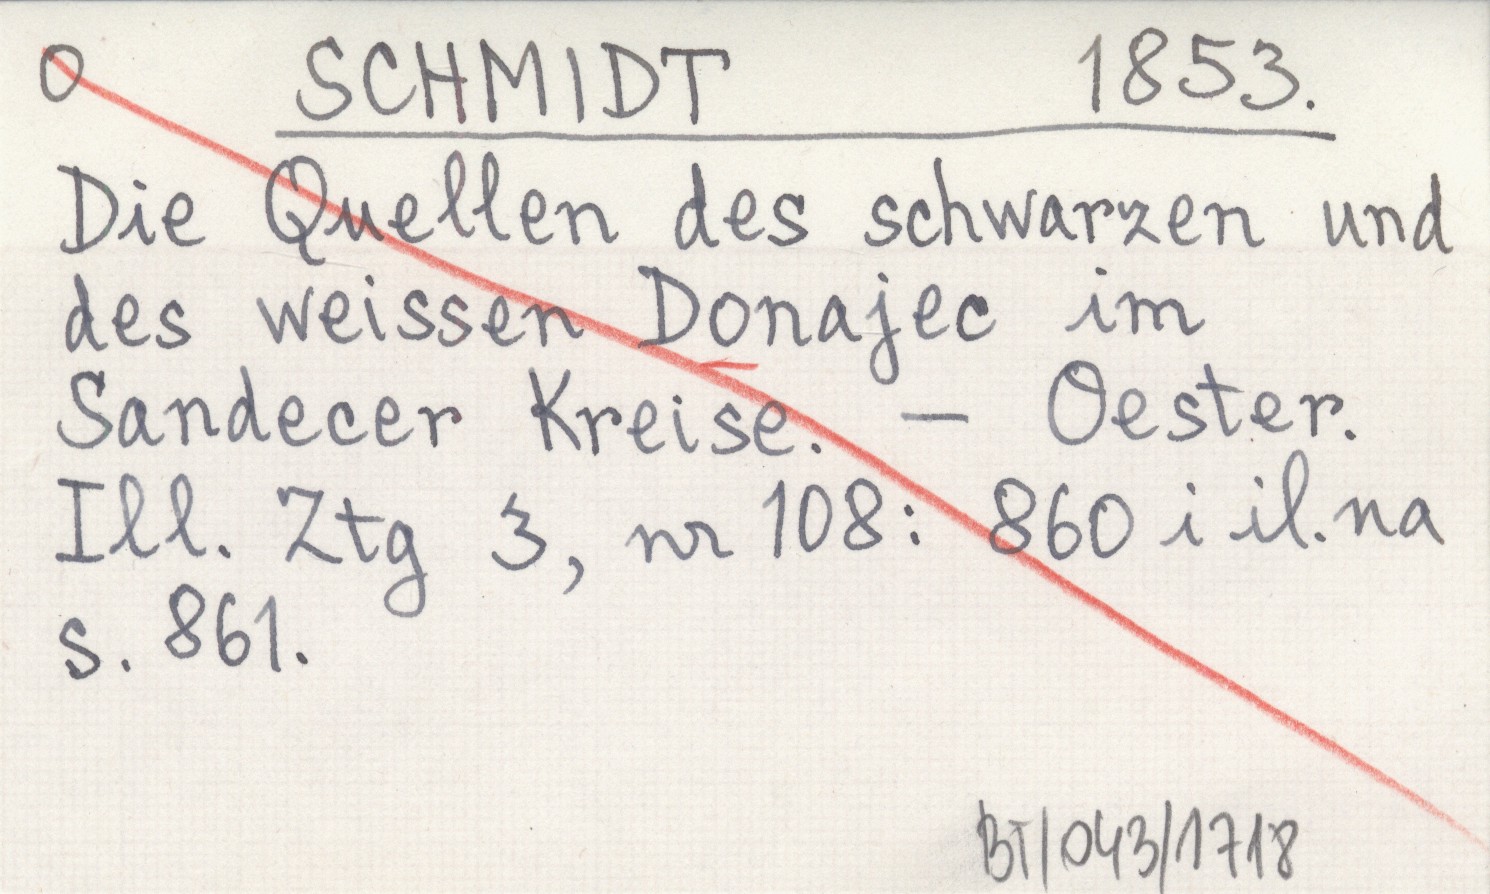 O SCHMIDT 1853.
Die Quellen des schwarzen und
des weissen Donajec im
Sandecer Kreise. — Oester.
Ill. Ztg 3, nr 108: 860 i il. na
s. 861.
BT/043/1718